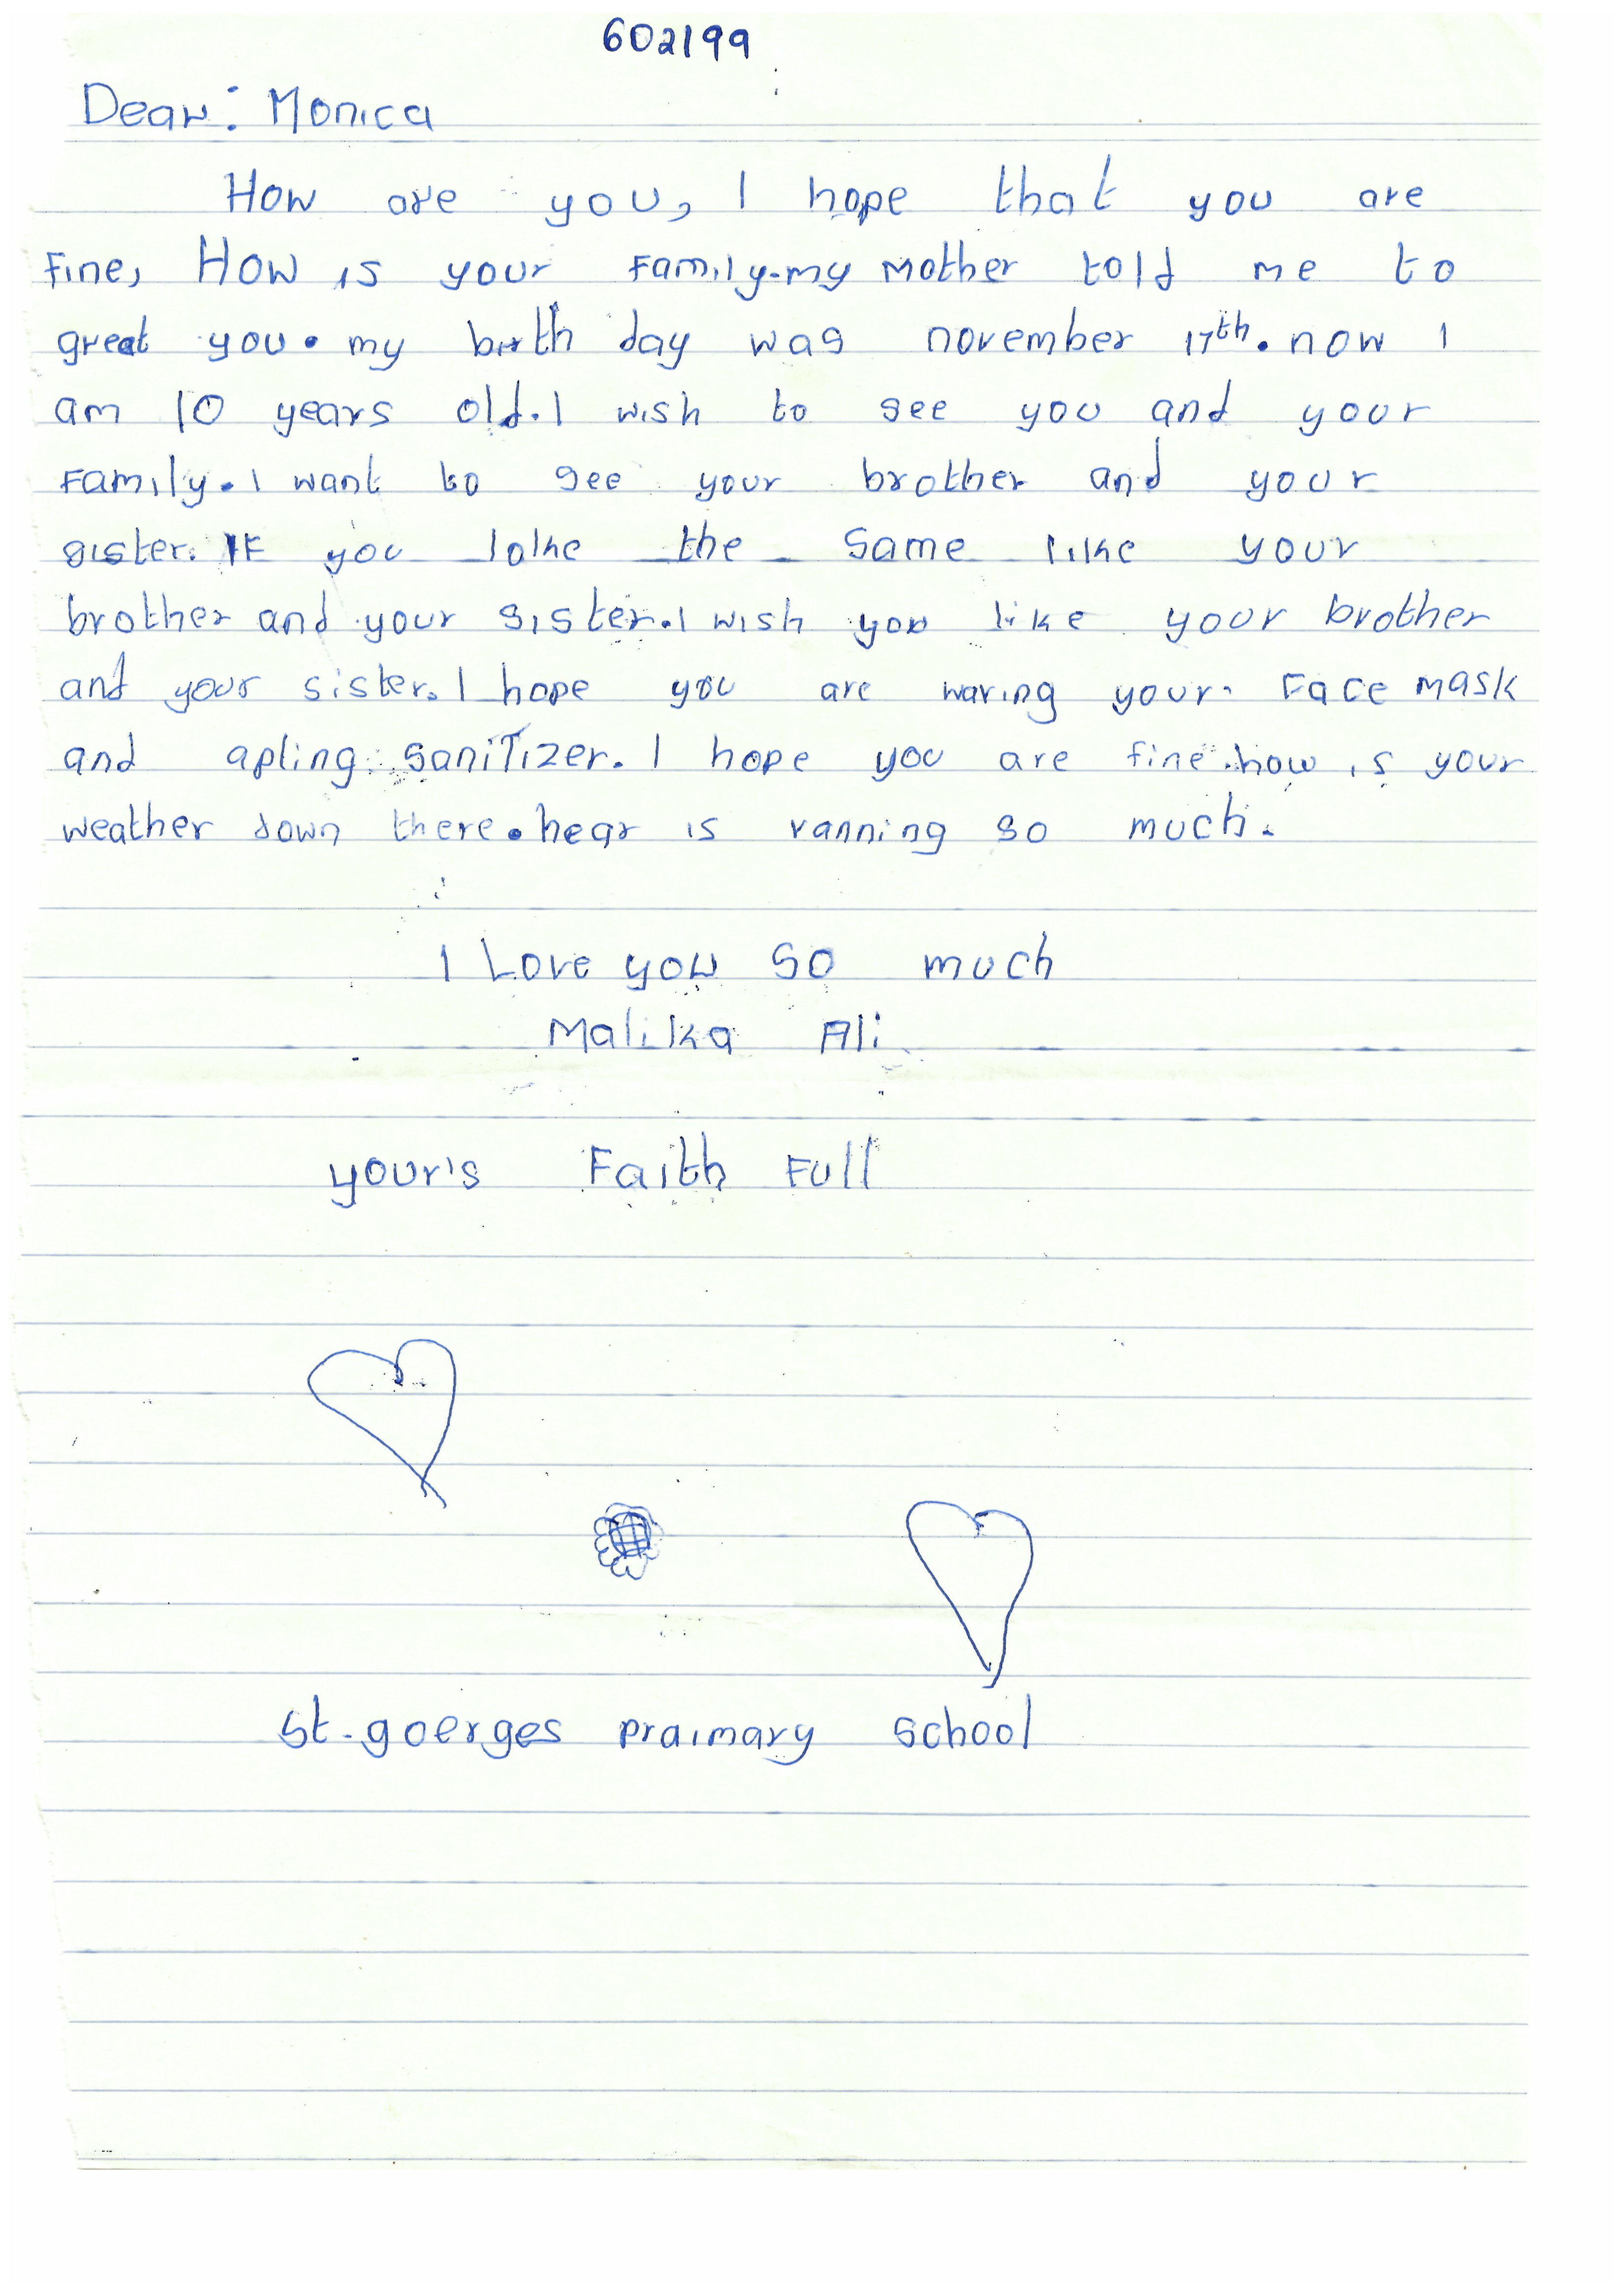 602199
Dear: Monica
How are you, I hope that you are
Fine, How is your Family.my Mother told me to
great you. my birth day was november 17th. now I
am 10 years old. I wish to see you and your
Family. I want to see your brother and your
sister. IF you lolke the same like your
brother and your sister. I wish you like your brother
and your sister. I hope you are waring your Face mask
and apling sanitizer. I hope you are fine. how is your
weather down there. hear is ranning so much.
I Love you so much
Malika Ali
your's Faith Full
St-goerges praimary school